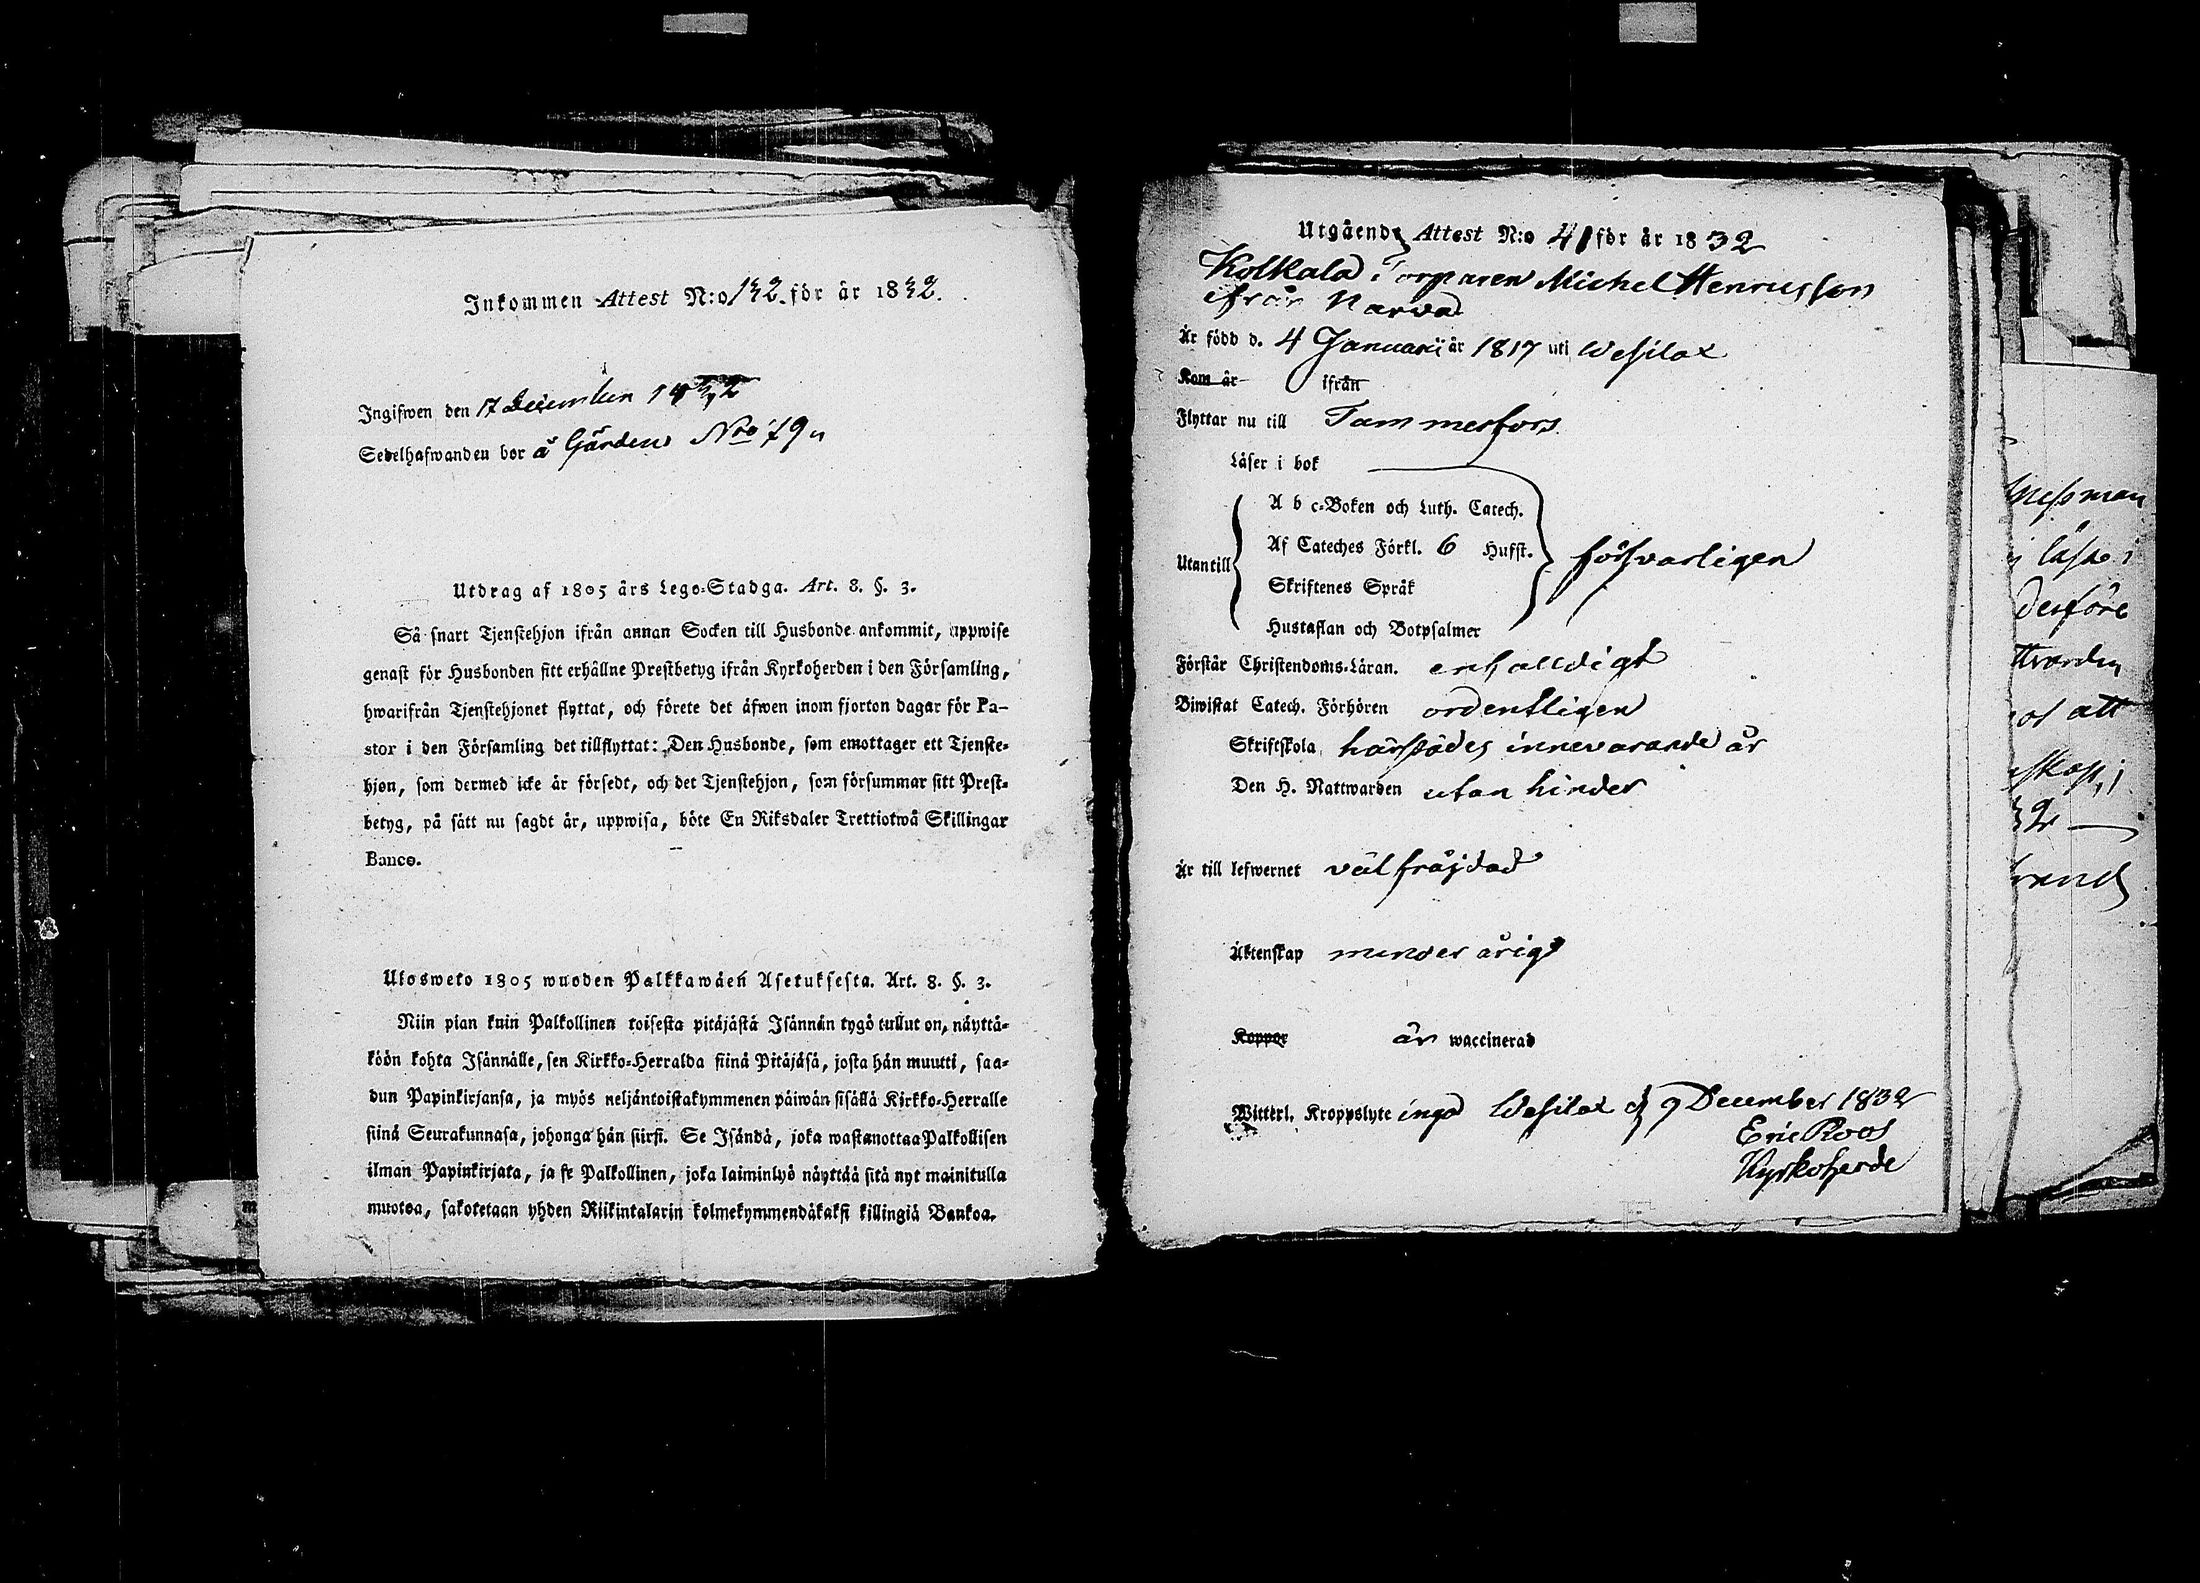 Inkommen Attest N:o 132. för år 1832.
Ingifwen den 17 December 1832
Sedelhafwanden bor å Gården Nro 79
Utdrag af 1805 års Lego-Stadga. Art. 8. §. 3.
Så snart Tjenstehjon ifrån annan Socken till Husbonde ankommit, uppwise
genast för Husbonden sitt erhållne Prestbetyg ifrån Kyrkoherden i den Församling,
hwarifrån Tjenstehjonet flyttat, och förete det äfwen inom fjorton dagar för Pa-
stor i den Församling det tillflyttat: Den Husbonde, som emottager ett Tjenste-
hjon, som dermed icke är försedt, och det Tjenstehjon, som försummar sitt Prest-
betyg, på sätt nu sagdt är, uppwisa, böte En Riksdaler Trettiotwå Skillingar
Banco.
Ulosweto 1805 wuoden Palkkawäen Asetuksesta. Art. 8. §. 3.
Niin pian kuin Palkollinen toisesta pitäjästä Isännän tygö tullut on, näyttä-
köön kohta Isännälle, sen Kirkko-Herralda siinä Pitäjäsä, josta hän muutti, saa-
dun Papinkirjansa, ja myös neljäntoistakymmenen päiwän sisällä Kirkko-Herralle
siinä Seurakunnasa, johonga hän siirsi. Se Isändä, joka wastanottaa Palkollisen
ilman Papinkirjata, ja se Palkollinen, joka laiminlyö näyttää sitä nyt mainitulla
muotoa, sakotetaan yhden Riikintalarin kolmekymmendäkaksi killingiä Bankoa.
Utgående Attest N:o 41 för år 1832
Kolkala Torparen Michel Henricsson
ifrån Narva
Är född d. 4 Januarii år 1817 uti Wesilax
Kom år ifrån
Flyttar nu till Tammerfors
Läser i bok
Utantill
A b c-Boken och Luth. Catech.
Af Cateches Förkl. 6 Hufst.
Skriftenes Språk
Hustaflan och Botpsalmer
försvarligen
Förstår Christendoms-Läran. enfalldigt
Biwistat Catech. Förhören ordentligen
Skriftskola härstädes innevarande år
Den H. Nattwarden utan hinder
Är till lefwernet väl fräjdad
Äktenskap minder årig
Koppor är waccinerad
Witterl. Kroppslyte inga Wesilax d 9 December 1832
Eric Roos
Kyrkoherde
läsa i
att